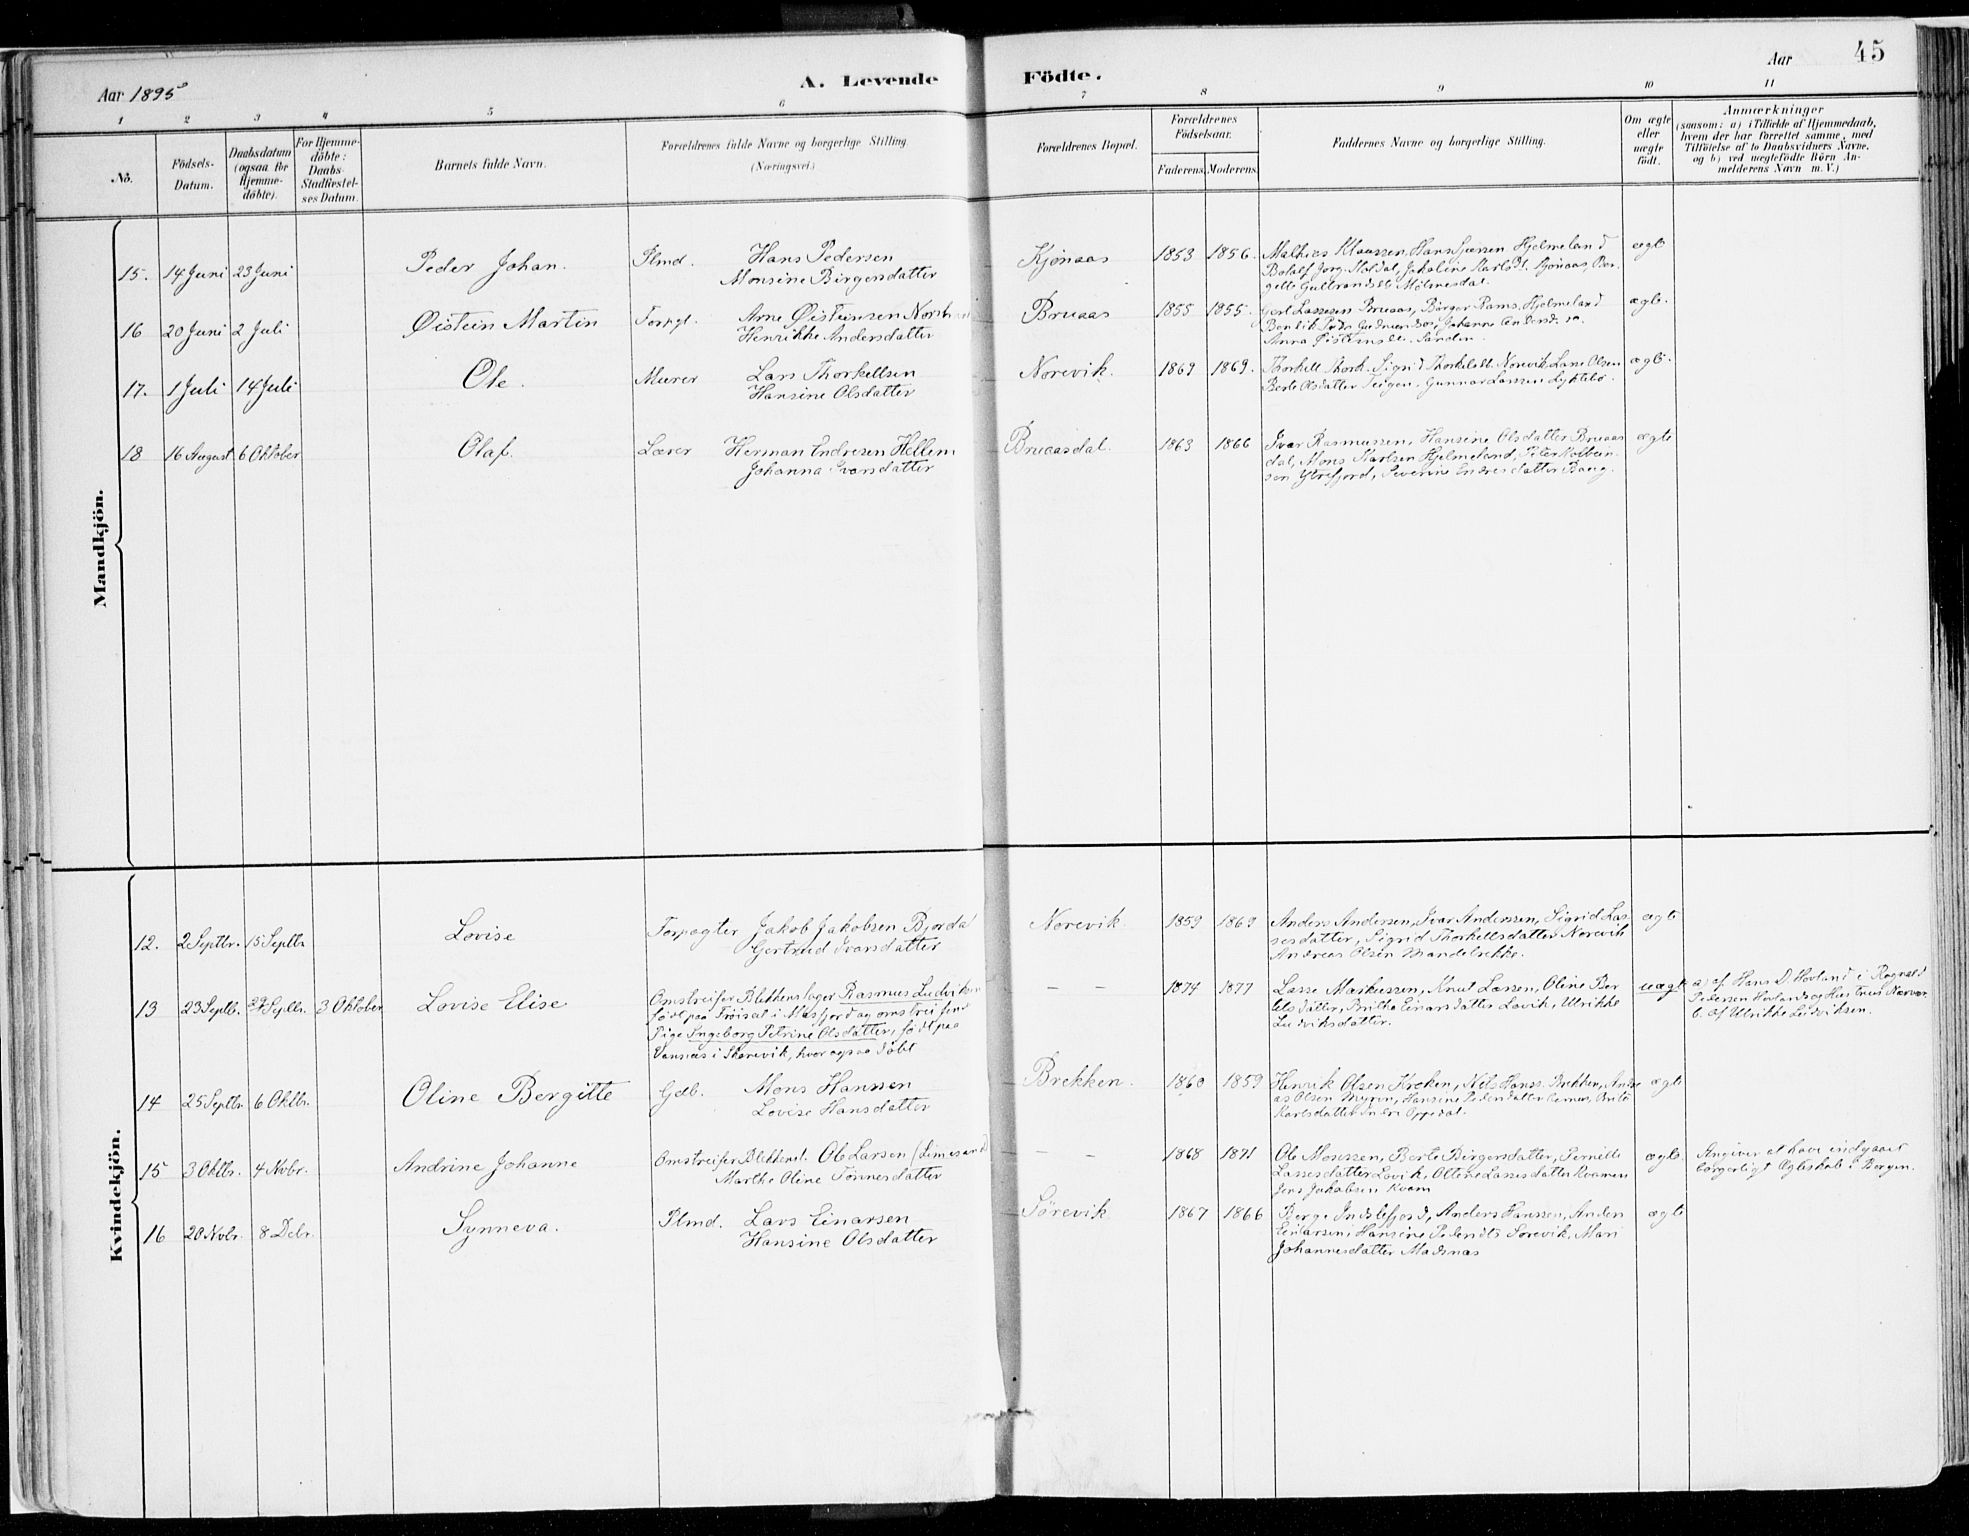 45
Aar 1895
A. Levende Födte.
Aar
1 2 3 4 5 6 7 8 9 10 11
No.
Födsels-Datum.
Daabsdatum (ogsaa for Hjemme-döbte).
For Hjemme-döbte: Daabs-Stadfæstel-ses Datum.
Barnets fulde Navn.
Forældrenes fulde Navne og borgerlige Stilling (Næringsvei.)
Forældrenes Bopæl.
Forældrenes Födselsaar.
Faderens. Moderens.
Faddernes Navne og borgerlige Stilling.
Om ægte eller uægte födt.
Anmærkninger
(saasom: a) i Tilfælde af Hjemmedaab, hvem der har forrettet samme, med Tilföielse af to Daabsvidners Navne, og b) ved uægtefödte Börn Anmelderens Navn m. V.)
Mandkjön.
15. 14 Juni 23 Juni Peder Johan. Plmd. Hans Pedersen
Monsine Birgersdatter
Kjønaas 1853 1856. Mathias Klaussen, Hans Hjelmeland ægte
16 20 Juni 2 Juli Øistein Martin Forpgt. Arne Øisteinsen
Henrikke Andersdatter
Bruaas 1855 1855. Lassesen Bruaas, Birger Rams. Hjelmeland ægte.
17. 1 Juli 14 Juli Ole. Murer Lars Thorkellsen
Hansine Olsdatter
Norevik. 1869 1869. Thorkell Thork. Sigrid Thorkelsdt. Norevik, Lars Olsen ægte.
Berte Olsdatter Teigen, Gunnar Larssen Lyktebø.
18 16 August 6 Oktober Olaf. Lærer Herman Endresen Hellem
Johanna Ivarsdatter
Bruaasdal. 1863 1866 Ivar Rasmussen, Hansine Olsdatter Bruaas ægte
dal, Mons Karlsen Hjelmeland, Peter Kolbein
sen Ytrefjord, Severine Endresdatter Bang.
Kvindekjön.
12. 2 Septbr. 15 Septbr Lovise Forpagter Jakob Jakobsen Bjordal
Gertrud Ivarsdatter
Norevik. 1859 1869 Anders Andersen, Ivar Andersen, Sigrid Las- ægte
sesdatter, Sigrid Thorkellsdatter Norevik
Andreas Olsen Mandelrekke.
13 23 Septb. 29 Septbr. 3 Oktober Lovise Elise Omstreifer Blikkenslager Rasmus Ludviksen
født paa Frøiset i Masfjord og omstreifende
Pige Ingeborg Petrine Olsdatter, født paa
i Skorevik, hvor ogsaa døbt
— — 1874 1877 Lasse Markussen, Knut Lassen, Oline Ber uægte
telsdatter, Britha Einarsdatter Lavik, Ulrikke
Ludviksdatter.
a) af Hans D Hovland i Ragnald
Pedersen Hovlands og Hustrus Nærvær.
b. af Ulrikke Ludviksen.
14 25 Septbr 6 Oktbr. Oline Bergitte Gdb. Mons Hanssen
Lovise Hansdatter
Brekken. 1860 1859 Henrik Olsen Kreken, Nils Hanss. Brekken, Andre ægte
as Olsen Myren, Hansine Pedersdatter
Karlsdatter Indre Oppedal.
15 3 Oktbr. 4 Novbr. Andrine Johanne Omstreifer Blikkensl. Ole Larsen (Limesand)
Marthe Oline Tønnesdatter
— — 1868 1871 Ole Monssen, Berte Birgersdatter, Pernille ægte.
Lassesdatter Lavik, Oline Lassesdatter Kvamen
Jens Jakobsen Kvam
Angiver at have indgaaet
borgerligt Ægteskab i Bergen.
16 20 Novbr. 8 Debr. Synneva. Plmd. Lars Einarsen
Hansine Olsdatter
Sørevik 1867 1866 Berge Indslefjord, Anders Hanssen, Anders ægte
Einarsen, Hansine Pedersdtr Sørevik, Mari
Johannesdatter Madsnas